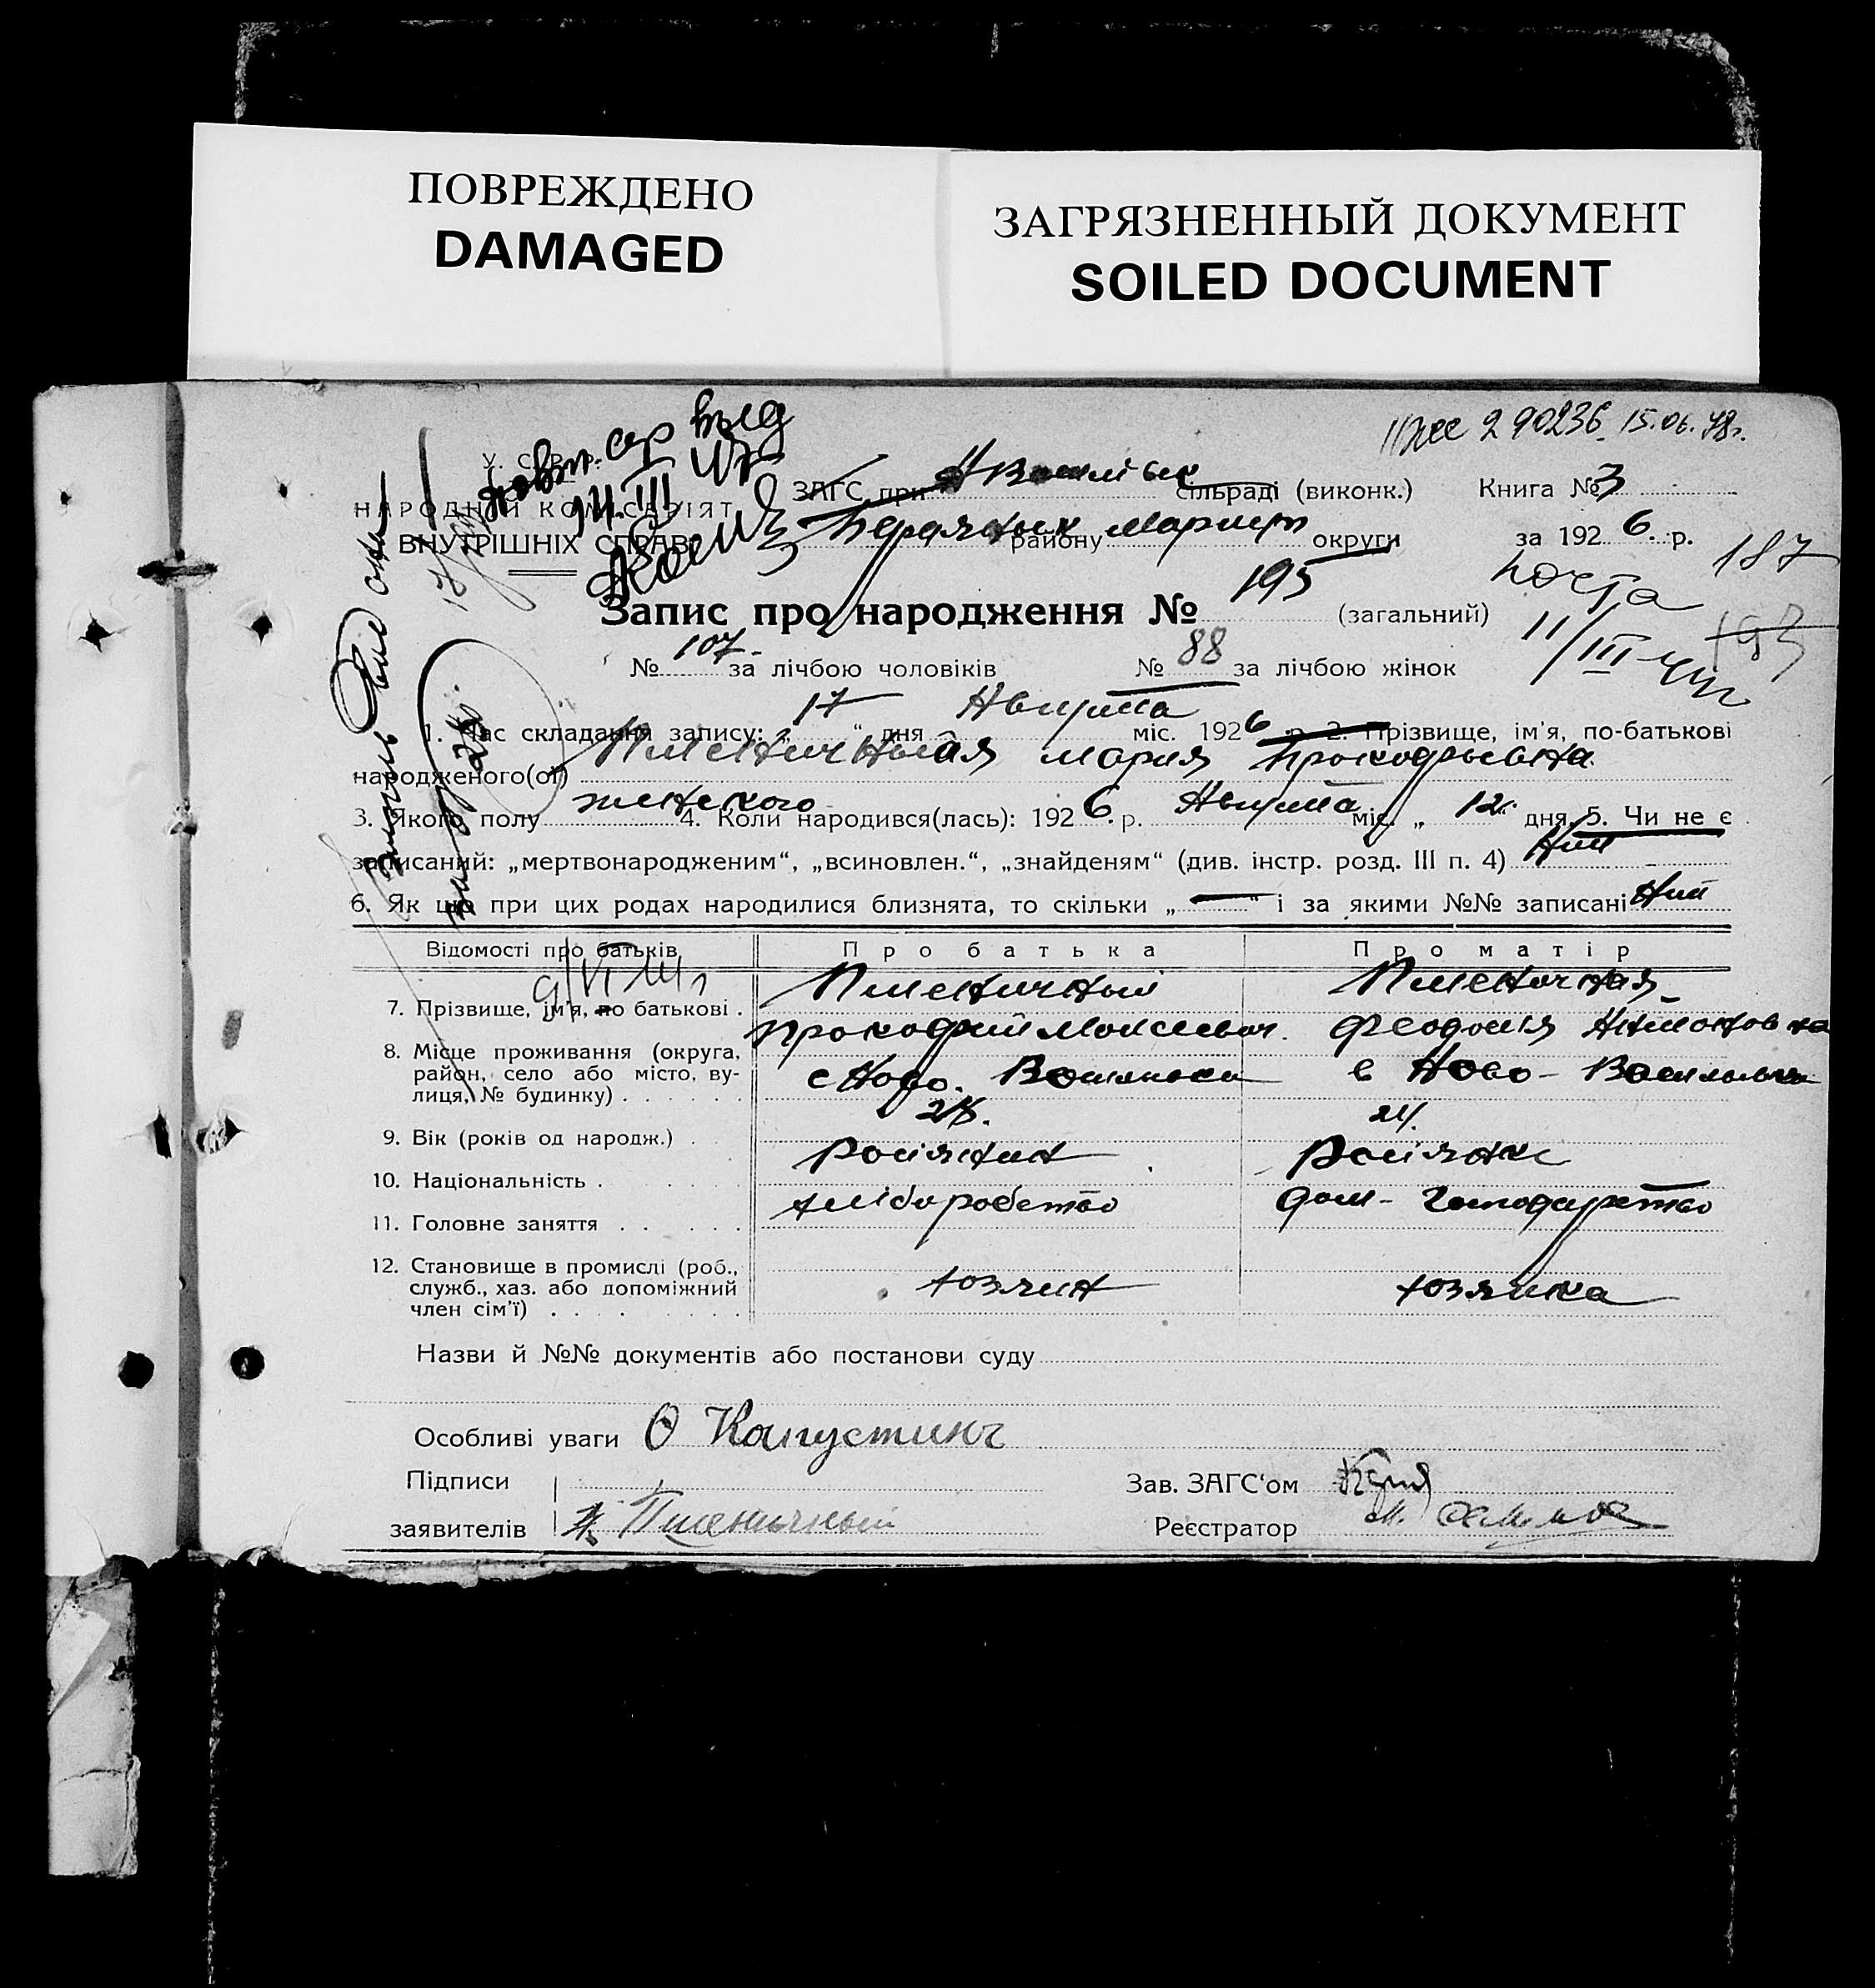 ПОВРЕЖДЕНО
DAMAGED
ЗАГРЯЗНЕННЫЙ ДОКУМЕНТ
SOILED DOCUMENT
290236 15.06.78г.
У. С. Р. Р.
НАРОДНІЙ КОМІСАРІЯТ
ВНУТРІШНІХ СПРАВ
14.III 47
ЗАГС при сільраді (виконк.) Книга № 3
району Мариуп округи за 1926 р.
187
почта
Запис про народження № 195 (загальний)
193
11/III-44г
№ 107 за лічбою чоловіків № 88 за лічбою жінок
1. Час складання запису: „17“ дня Августа міс. 1926 р. 2. Прізвище, ім'я, по-батькові
народженого(ої) Пшеничная Мария Прокофьевна
3. Якого полу женского 4. Коли народився(лась): 1926. р. Августа міс. „ 12. дня. 5. Чи не є
записаний: „мертвонародженим“, „всиновлен.“, „знайденям“ (див. інстр. розд. III п. 4) Ние
6. Як що при цих родах народилися близнята, то скільки „—“ і за якими №№ записані Ние
Відомості про батьків Про батька Про матір
9/VI
7. Прізвище, ім'я, по батькові . Пшеничный Прокофий Моисеевич. Пшеничная Феодосія
8. Місце проживання (округа, район, село або місто, вулиця, № будинку) . . . . . . с Ново. в Ново-
9. Вік (років од народж.) . 24.
10. Національність . . . . . Росіянин Росіянка
11. Головне заняття . . . . . хліборобство дом-господарство
12. Становище в промислі (роб., служб., хаз. або допоміжний член сім'ї) . . . . . . хозяин хозяика
Назви й №№ документів або постанови суду
Особливі уваги Капустинъ
Підписи Зав. ЗАГС'ом
заявителів Пшеничный Реєстратор